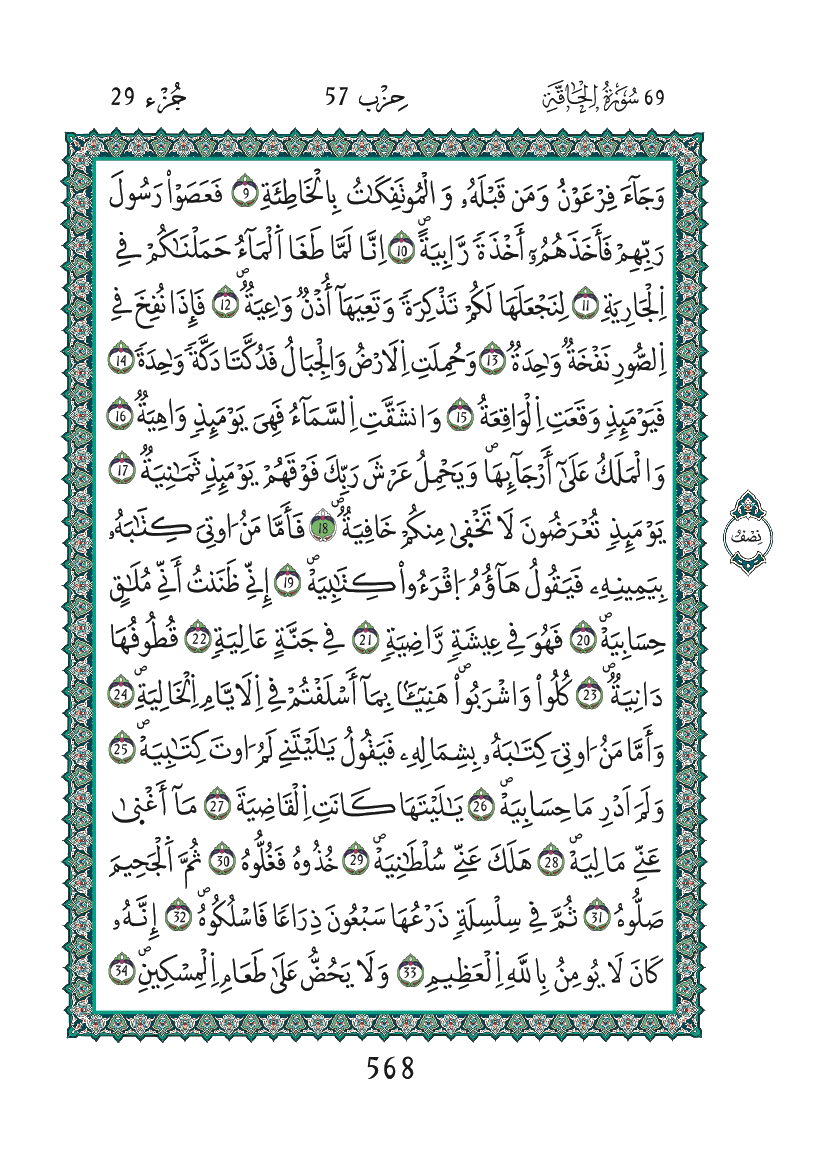 69 سُورَةُ الْحَاقَّةِ حِزْب 57 جُزْء 29
وَجَآءَ فِرْعَوْنُ وَمَن قَبْلَهُۥ وَالْمُوتَفِكَٰتُ بِالْخَاطِئَةِ 9 فَعَصَوْاْ رَسُولَ
رَبِّهِمْ فَأَخَذَهُمُۥٓ أَخْذَةٗ رَّابِيَةًۖ 10 اِنَّا لَمَّا طَغَا اَ۬لْمَآءُ حَمَلْنَٰكُمْ فِے
اِ۬لْجَارِيَةِ 11 لِنَجْعَلَهَا لَكُمْ تَذْكِرَةٗ وَتَعِيَهَآ أُذْنٞ وَٰعِيَةٞۖ 12 فَإِذَا نُفِخَ فِے
اِ۬لصُّورِ نَفْخَةٞ وَٰحِدَةٞ 13 وَحُمِلَتِ اِ۬لَارْضُ وَالْجِبَالُ فَدُكَّتَا دَكَّةٗ وَٰحِدَةٗ 14
فَيَوْمَئِذٖ وَقَعَتِ اِ۬لْوَاقِعَةُ 15 وَانشَقَّتِ اِ۬لسَّمَآءُ فَهِيَ يَوْمَئِذٖ وَاهِيَةٞۖ 16
وَالْمَلَكُ عَلَىٰٓ أَرْجَآئِهَاۖ وَيَحْمِلُ عَرْشَ رَبِّكَ فَوْقَهُمْ يَوْمَئِذٖ ثَمَٰنِيَةٞۖ 17
يَوْمَئِذٖ تُعْرَضُونَ لَا تَخْفَىٰ مِنكُمْ خَافِيَةٞۖ 18 فَأَمَّا مَنُ ا۟وتِيَ كِتَٰبَهُۥ
نِصْفُ
بِيَمِينِهِۦ فَيَقُولُ هَآؤُمُ اُ۪قْرَءُواْ كِتَٰبِيَهْۖ 19 إِنِّے ظَنَنتُ أَنِّے مُلَٰقٍ
حِسَابِيَهْۖ 20 فَهُوَ فِے عِيشَةٖ رَّاضِيَةٖ 21 فِے جَنَّةٍ عَالِيَةٖ 22 قُطُوفُهَا
دَانِيَةٞۖ 23 كُلُواْ وَاشْرَبُواْۖ هَنِيٓـٔاَۢ بِمَآ أَسْلَفْتُمْ فِے اِ۬لَايَّامِ اِ۬لْخَالِيَةِۖ 24
وَأَمَّا مَنُ ا۟وتِيَ كِتَٰبَهُۥ بِشِمَالِهِۦ فَيَقُولُ يَٰلَيْتَنِے لَمُ ا۟وتَ كِتَٰبِيَهْۖ 25
وَلَمَ اَدْرِ مَا حِسَابِيَهْۖ 26 يَٰلَيْتَهَا كَانَتِ اِ۬لْقَاضِيَةَ 27 مَآ أَغْنَىٰ
عَنِّے مَالِيَهْۖ 28 هَلَكَ عَنِّے سُلْطَٰنِيَهْۖ 29 خُذُوهُ فَغُلُّوهُ 30 ثُمَّ اَ۬لْجَحِيمَ
صَلُّوهُ 31 ثُمَّ فِے سِلْسِلَةٖ ذَرْعُهَا سَبْعُونَ ذِرَاعاٗ فَاسْلُكُوهُۖ 32 إِنَّهُۥ
كَانَ لَا يُومِنُ بِاللَّهِ اِ۬لْعَظِيمِ 33 وَلَا يَحُضُّ عَلَىٰ طَعَامِ اِ۬لْمِسْكِينِۖ 34
568